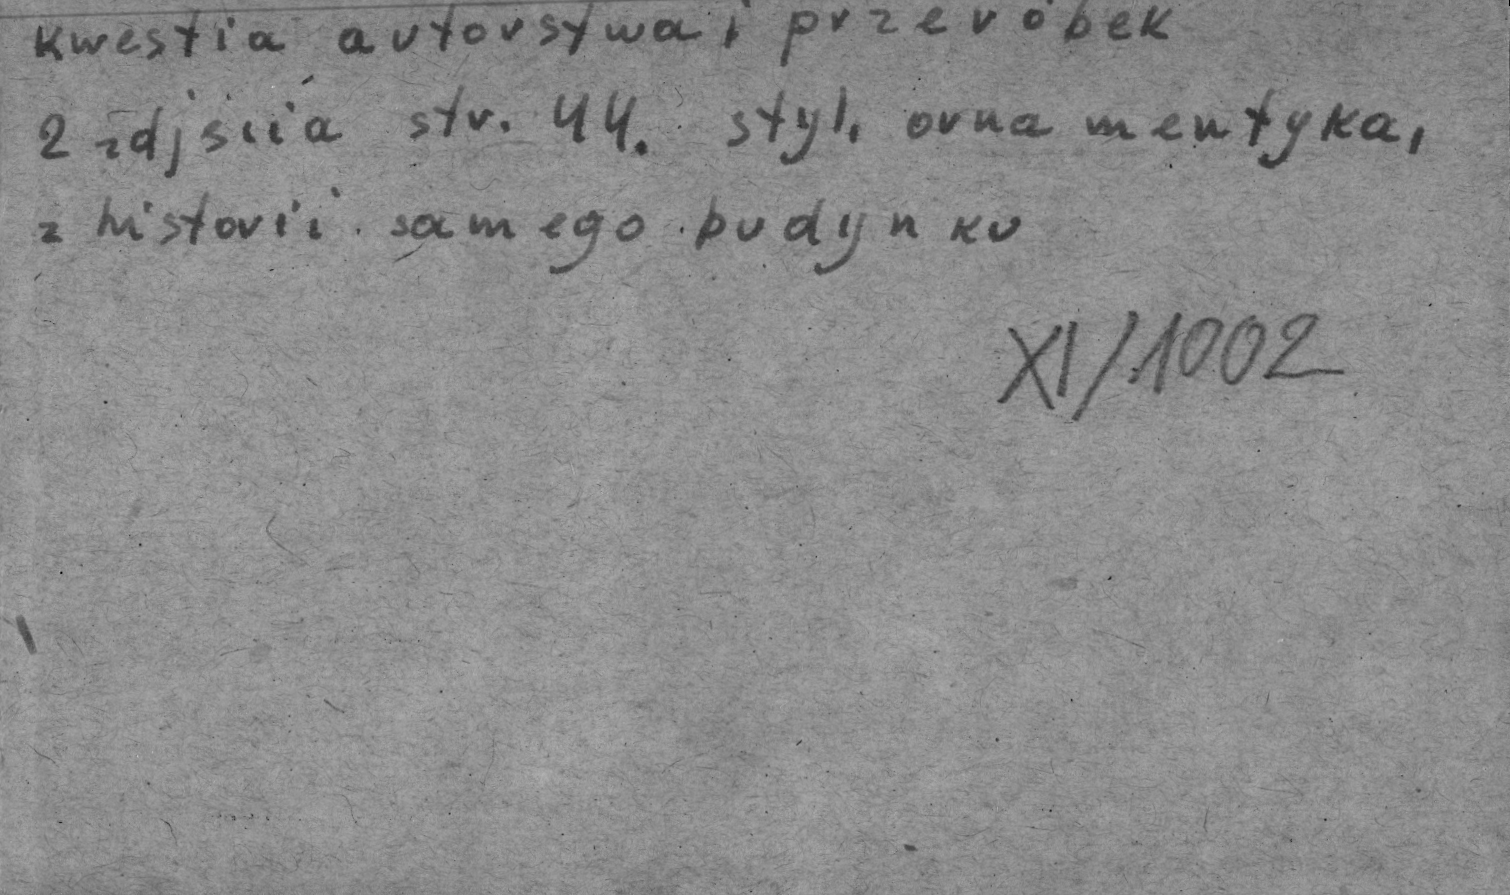 kwestia autorstwa i przeróbek
2 zdjścia str. 44. styl, ornamentyka,
z historii samego budynku
XI/1002